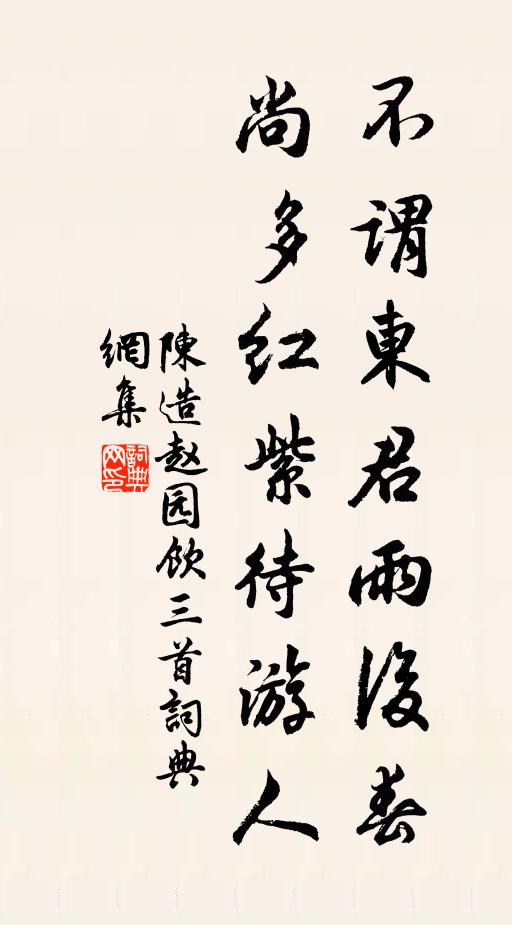 不謂東君雨後春
尚多紅紫待游人
陳造赵园飲三首詞典
網集
詞典
网印